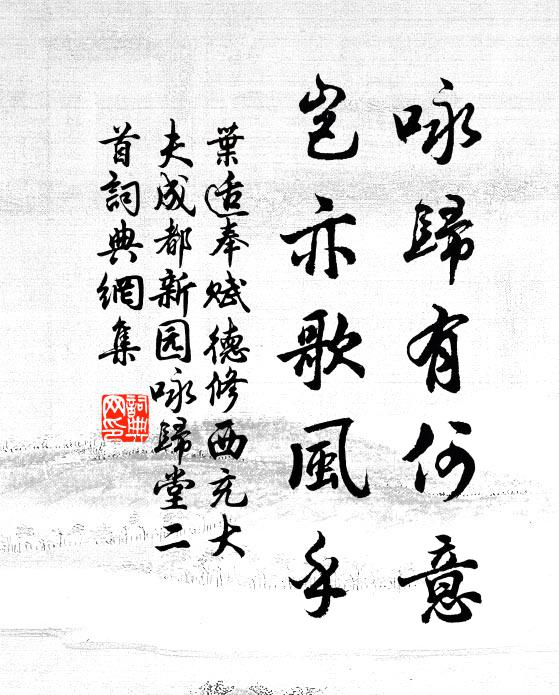 咏歸有何意
豈亦歌風乎
葉适奉赋德修西充大
夫成都新园咏歸堂二
首詞典網集
詞典
网印